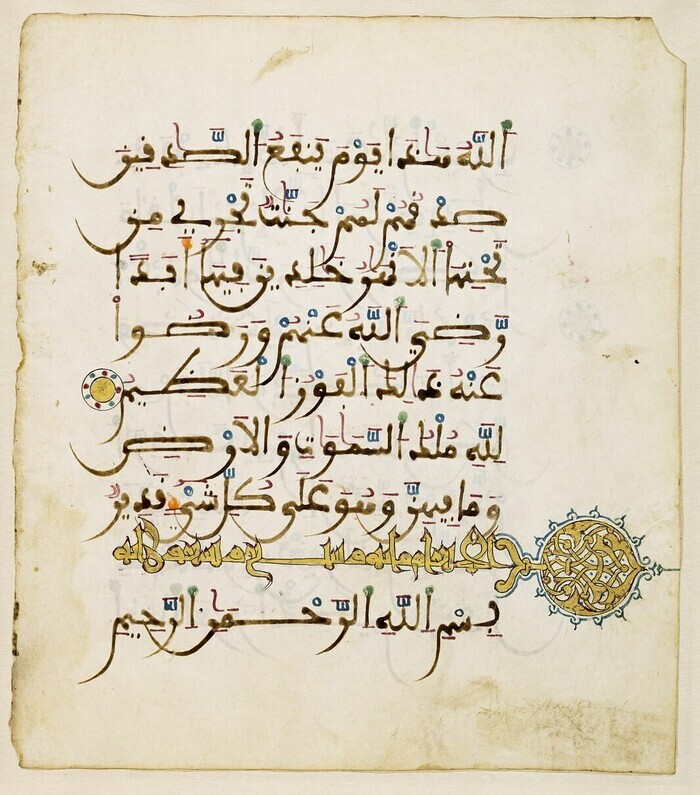 اللَّهُ هَٰذَا يَوْمَ يَنفَعُ الصَّٰدِقِينَ
صِدْقُهُمْ لَهُمْ جَنَّٰتٌ تَجْرِي مِن
تَحْتِهَا الْأَنْهَٰرُ خَٰلِدِينَ فِيهَا أَبَدًا
رَّضِيَ اللَّهُ عَنْهُمْ وَرَضُوا
عَنْهُ ذَٰلِكَ الْفَوْزُ الْعَظِيمُ
لِلَّهِ مُلْكُ السَّمَٰوَٰتِ وَالْأَرْضِ
وَمَا فِيهِنَّ وَهُوَ عَلَىٰ كُلِّ شَيْءٍ قَدِيرٌ
الانعام مايه وستون
بِسْمِ اللَّهِ الرَّحْمَٰنِ الرَّحِيمِ